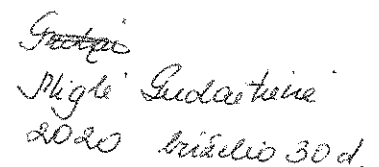 Miglė Gudaitienė
2020 birželio 30 d.